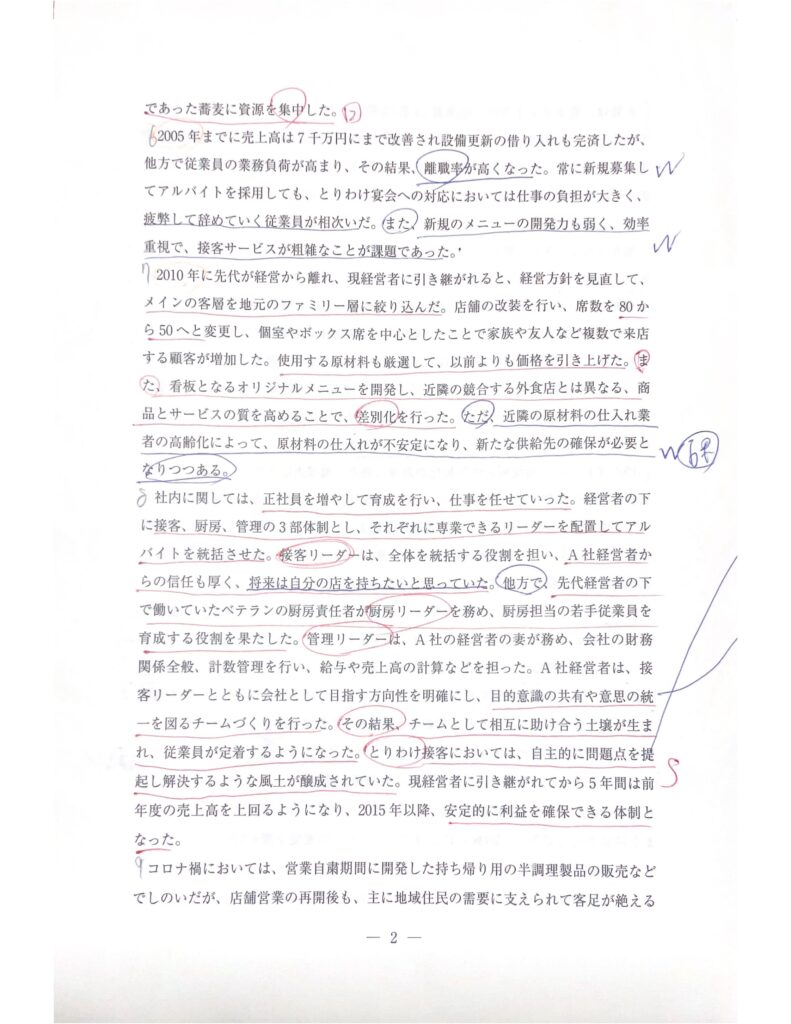 であった蕎麦に資源を集中した。
6 2005年までに売上高は7千万円にまで改善され設備更新の借り入れも完済したが、
他方で従業員の業務負荷が高まり、その結果、離職率が高くなった。常に新規募集し W
てアルバイトを採用しても、とりわけ宴会への対応においては仕事の負担が大きく、
疲弊して辞めていく従業員が相次いだ。また、新規のメニューの開発力も弱く、効率
重視で、接客サービスが粗雑なことが課題であった。 W
7 2010年に先代が経営から離れ、現経営者に引き継がれると、経営方針を見直して、
メインの客層を地元のファミリー層に絞り込んだ。店舗の改装を行い、席数を80か
ら50へと変更し、個室やボックス席を中心としたことで家族や友人など複数で来店
する顧客が増加した。使用する原材料も厳選して、以前よりも価格を引き上げた。ま
た、看板となるオリジナルメニューを開発し、近隣の競合する外食店とは異なる、商
品とサービスの質を高めることで、差別化を行った。ただ、近隣の原材料の仕入れ業
者の高齢化によって、原材料の仕入れが不安定になり、新たな供給先の確保が必要と W
なりつつある。
8 社内に関しては、正社員を増やして育成を行い、仕事を任せていった。経営者の下
に接客、厨房、管理の3部体制とし、それぞれに専業できるリーダーを配置してアル
バイトを統括させた。接客リーダーは、全体を統括する役割を担い、A社経営者か
らの信任も厚く、将来は自分の店を持ちたいと思っていた。他方で、先代経営者の下
で働いていたベテランの厨房責任者が厨房リーダーを務め、厨房担当の若手従業員を
育成する役割を果たした。管理リーダーは、A社の経営者の妻が務め、会社の財務
関係全般、計数管理を行い、給与や売上高の計算などを担った。A社経営者は、接
客リーダーとともに会社として目指す方向性を明確にし、目的意識の共有や意思の統
一を図るチームづくりを行った。その結果、チームとして相互に助け合う土壌が生ま
れ、従業員が定着するようになった。とりわけ接客においては、自主的に問題点を提
起し解決するような風土が醸成されていた。現経営者に引き継がれてから5年間は前 S
年度の売上高を上回るようになり、2015年以降、安定的に利益を確保できる体制と
なった。
9 コロナ禍においては、営業自粛期間に開発した持ち帰り用の半調理製品の販売など
でしのいだが、店舗営業の再開後も、主に地域住民の需要に支えられて客足が絶える
— 2 —